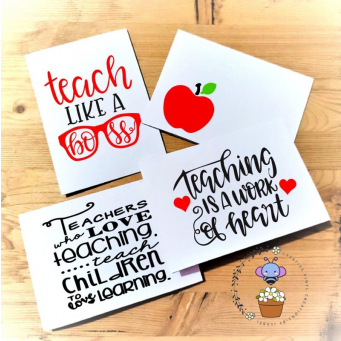 teach
LIKE A
boss
Teaching
IS A WORK
of heart
TEACHERS
who LOVE
teaching.
teach
children
TO
LOVE LEARNING.